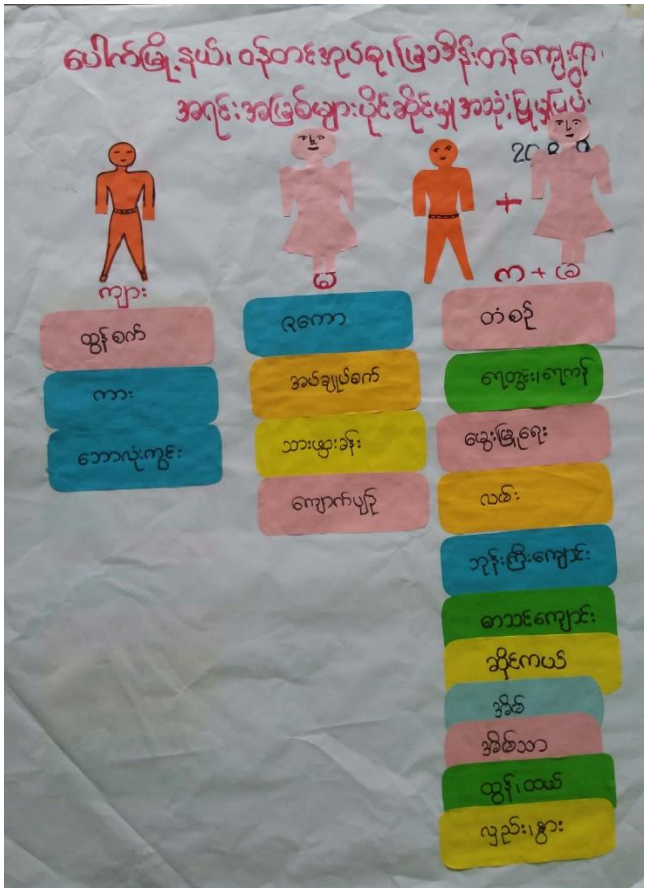 ပေါက်မြို့နယ်၊ ဝန်တင်အုပ်စု၊ မြသိန်းတန်ကျေးရွာ၊
အရင်းအမြစ်များပိုင်ဆိုင်မှုအသုံးပြုမှုပြပုံ
ကျား
မ
က + မ
ထွန်စက်
ကား
ဘောလုံးကွင်း
ဇကော
အပ်ချုပ်စက်
သားဖွားခန်း
ကျောက်ပျဉ်
တံစဉ်
ရေတွင်း၊ရေကန်
မွေးမြူရေး
လမ်း
ဘုန်းကြီးကျောင်း
စာသင်ကျောင်း
ဆိုင်ကယ်
အိမ်
အိမ်သာ
ထွန်၊ထယ်
လှည်း၊နွား